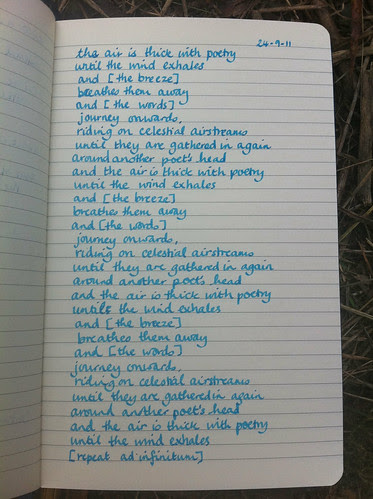 24-9-11
the air is thick with poetry
until the mind exhales
and [the breeze]
breathes them away
and [the words]
journey onwards,
riding on celestial airstreams
until they are gathered in again
around another poet's head
and the air is thick with poetry
until the wind exhales
and [the breeze]
breathes them away
and [the words]
journey onwards,
riding on celestial airstreams
until they are gathered in again
around another poet's head
and the air is thick with poetry
until the mind exhales
and [the breeze]
breathes them away
and [the words]
journey onwards,
riding on celestial airstreams
until they are gathered in again
around another poet's head
and the air is thick with poetry
until the mind exhales
[repeat ad infinitum]